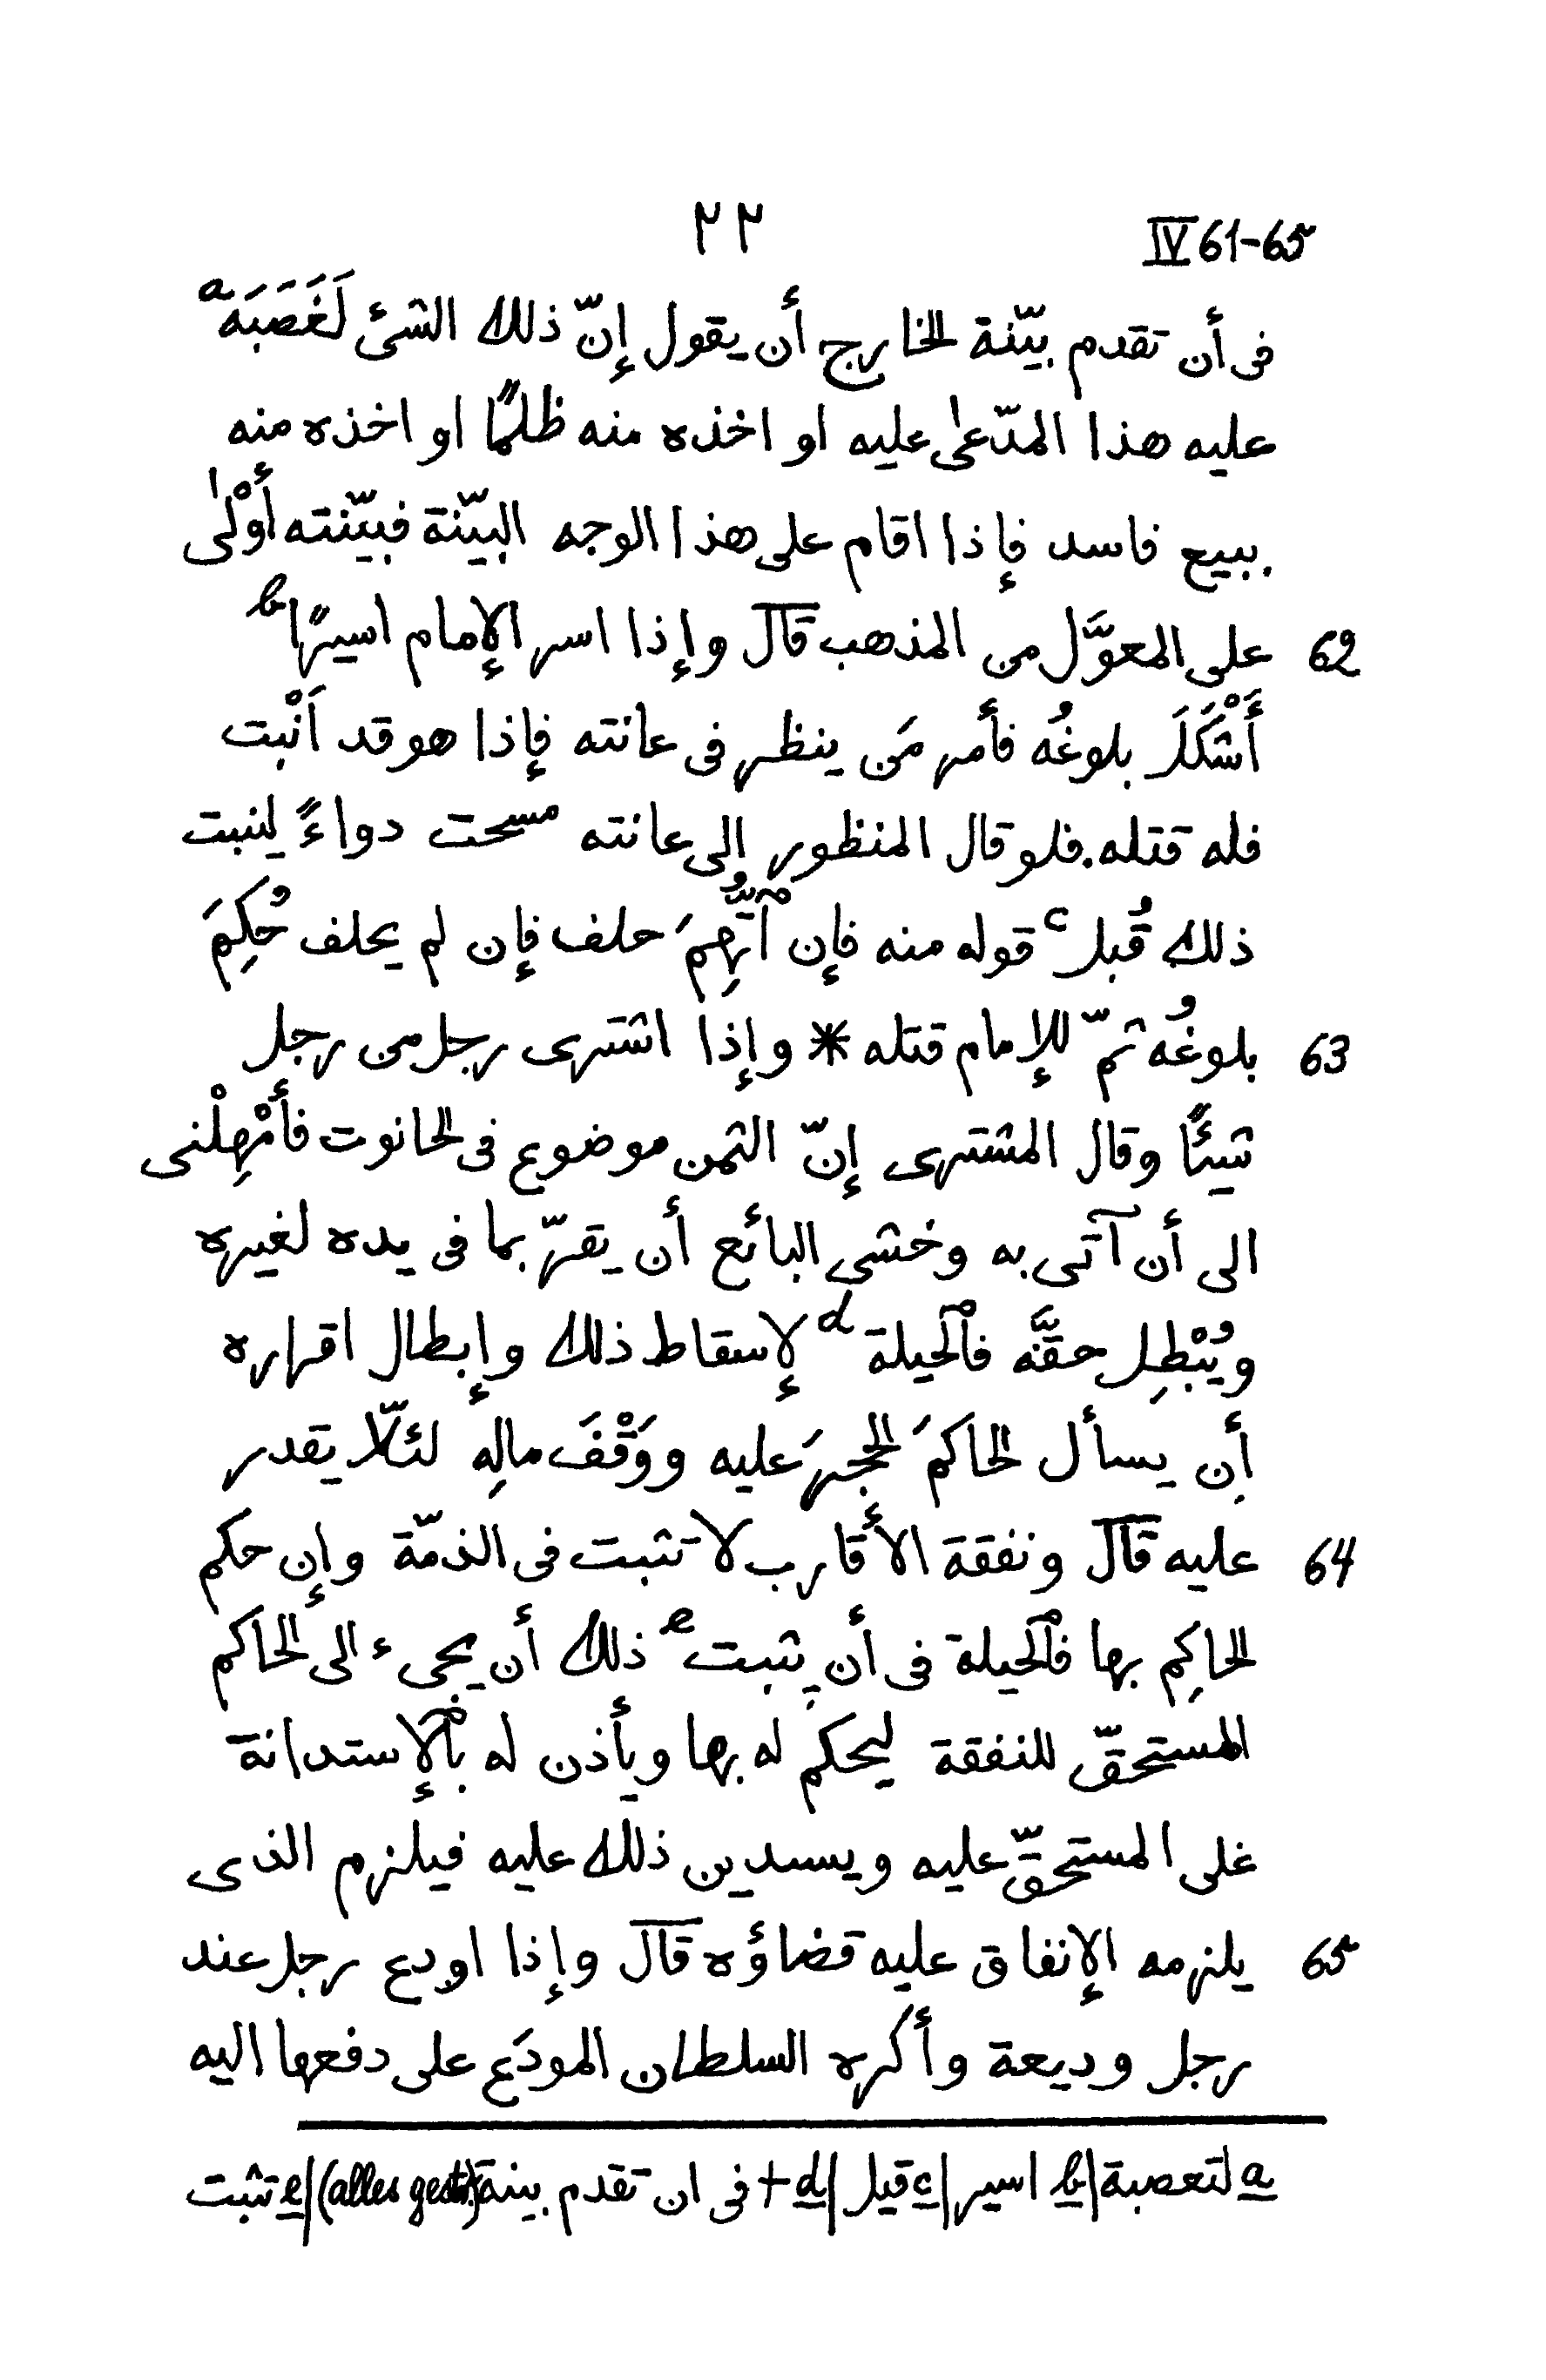 ٢٢ IV 61-65
فى أن تقدم بيّنة الخارج أن يقول إنّ ذلك الشئ لَغَصَبَه a
عليه هذا المدّعى عليه او اخذه منه ظلمًا او اخذه منه
ببيع فاسد فإذا اقام على هذا الوجه البيّنة فبيّنته أوْلٰى
62 على المعوَّل من المذهب قال وإذا اسر الإمام اسيرًا b
أَشْكَلَ بلوغُه فأمر مَن ينظر فى عانته فإذا هو قد اَنْبت
فله قتله. فلو قال المنظور إلى عانته مسحت دواءً لينبت
ذلك قُبل c قوله منه فإن ٱتُّهِمَ حلف فإن لم يحلف حُكِمَ
63 بلوغُه ثمّ للإمام قتله * وإذا اشترى رجل من رجل
شيئًا وقال المشترى إنّ الثمن موضوع فى الحانوت فأمْهِلْنى
الى أن آتى به وخشى البائع أن يقرّ بما فى يده لغيره
ويُبْطِل حقَّه فٱلحيلة d لإسقاط ذلك وإبطال اقراره
أن يسأل الحاكمَ الحجرَ عليه ووَقْفَ مالِه لئلّا يقدر
64 عليه قال ونفقة الأقارب لا تثبت فى الذمّة وإن حكم
الحاكِم بها فٱلحيلة فى أن يثبت e ذلك أن يجىء الى الحاكم
المستحقّ للنفقة ليحكم له بها ويأذن له بٱلإستدانة
على المستحقّ عليه ويسدين ذلك عليه فيلزم الذى
65 يلزمه الإنفاق عليه قضاؤه قال وإذا اودع رجل عند
رجل وديعة وأكره السلطان المودَع على دفعها اليه
a لتعصبة | b اسير | c قيل | d + فى ان تقدم بينة (alles gestr.) | e تثبت